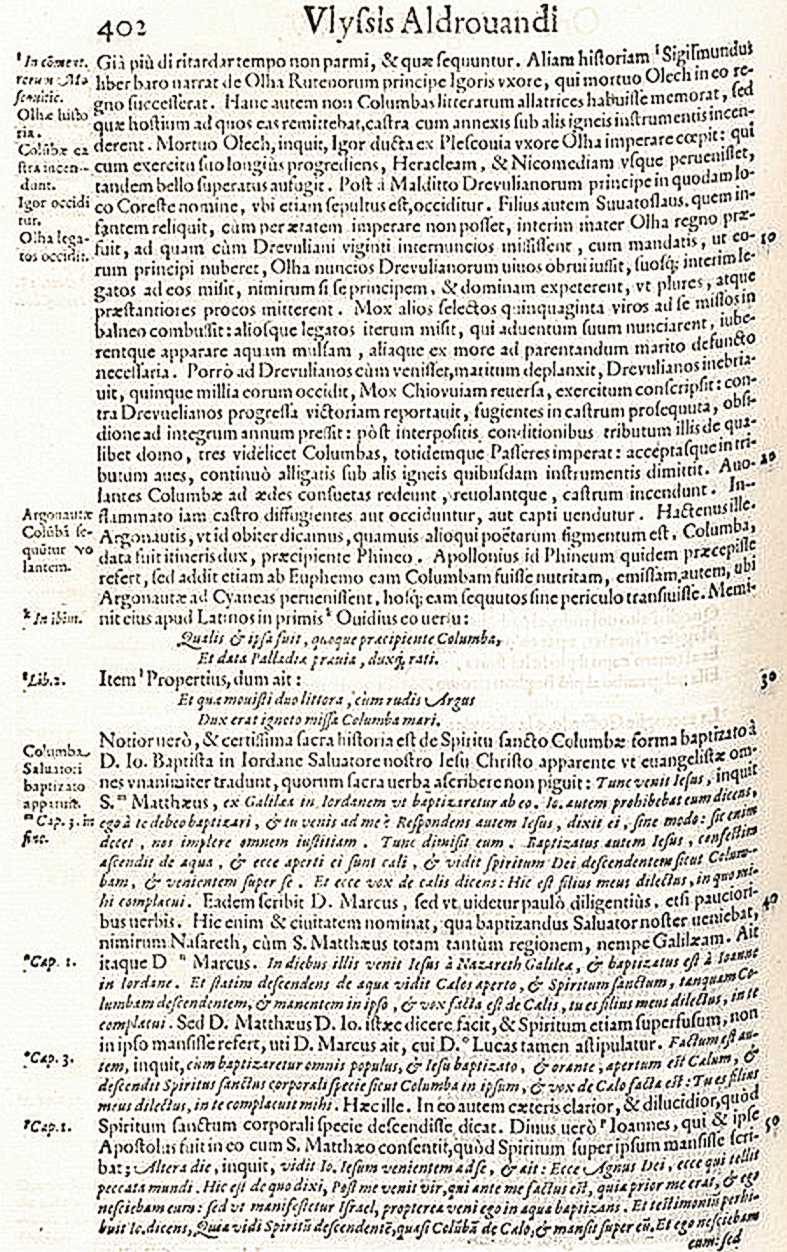 402
Vlyssis Aldrouandi
Già più di ritardar tempo non parmi, & quæ sequuntur. Aliam historiam ¹ Sigismundus
liber baro narrat de Olha Rutenorum principe Igoris vxore, qui mortuo Olech in eo re-
gno successerat. Hanc autem non Columbas litterarum allatrices habuisse memorat, sed
quæ hostium ad quos eas remittebat, castra cum annexis sub alis igneis instrumentis incen-
derent. Mortuo Olech, inquit, Igor ducta ex Plescouia vxore Olha imperare cœpit: qui
cum exercitu suo longiùs progrediens, Heracleam, & Nicomediam vsque peruenisset,
tandem bello superatus aufugit. Post à Malditto Drevulianorum principe in quodam lo-
co Coreste nomine, vbi etiam sepultus est, occiditur. Filius autem Suuatoslaus, quem in-
fantem reliquit, cùm per ætatem imperare non posset, interim mater Olha regno præ-
fuit, ad quam cùm Drevuliani viginti internuncios misissent, cum mandatis, ut eo-
rum principi nuberet, Olha nuncios Drevulianorum uiuos obrui iussit, suosq; interim le-
gatos ad eos misit, nimirum si se principem, & dominam expeterent, vt plures, atque
præstantiores procos mitterent. Mox alios selectos quinquaginta viros ad se missos in
balneo combussit: aliosque legatos iterum misit, qui aduentum suum nunciarent, iube-
rentque apparare aquam mulsam, aliaque ex more ad parentandum marito defuncto
necessaria. Porrò ad Drevulianos cùm venisset, maritum deplanxit, Drevulianos inebria-
uit, quinque millia eorum occidit, Mox Chiovuiam reuersa, exercitum conscripsit: con-
tra Drevuelianos progressa victoriam reportauit, fugientes in castrum prosequuta, obsi-
dione ad integrum annum pressit: pòst interpositis conditionibus tributum illis de qua-
libet domo, tres videlicet Columbas, totidemque Passeres imperat: acceptasque in tri-
butum aues, continuò alligatis sub alis igneis quibusdam instrumentis dimittit. Auo-
lantes Columbæ ad ædes consuetas redeunt, reuolantque, castrum incendunt. In-
flammato iam castro diffugientes aut occiduntur, aut capti uendutur. Hactenus ille.
Argonautis, vt id obiter dicamus, quamuis alioqui poëtarum figmentum est, Columba,
data fuit itineris dux, præcipiente Phineo. Apollonius id Phineum quidem præcepisse
refert, sed addit etiam ab Euphemo eam Columbam fuisse nutritam, emissam, autem, ubi
Argonautæ ad Cyaneas peruenissent, hosq; eam sequutos sine periculo transiuisse. Memi-
nit eius apud Latinos in primis ᵏ Ouidius eo uersu:
Qualis & ipsa fuit, quoque præcipiente Columba,
Et data Palladiæ præuia, duxq; rati.
Item ˡ Propertius, dum ait:
Et quæ mouisti duo littora, cùm rudis Argus
Dux erat ignoto missa Columba mari.
Notior uerò, & certissima sacra historia est de Spiritu sancto Columbæ forma baptizato à
D. Io. Baptista in Iordane Saluatore nostro Iesu Christo apparente vt euangelistæ om-
nes vnanimiter tradunt, quorum sacra uerba ascribere non piguit: Tunc venit Iesus, inquit
S. ᵐ Matthæus, ex Galilæa in Iordanem vt baptizaretur ab eo. Io. autem prohibebat eum dicens,
ego à te debeo baptizari, & tu venis ad me? Respondens autem Iesus, dixit ei, sine modo: sic enim
decet, nos implere omnem iustitiam. Tunc dimisit eum. Baptizatus autem Iesus, confestim
ascendit de aqua, & ecce aperti ei sunt cæli, & vidit spiritum Dei descendentem sicut Colum-
bam, & venientem super se. Et ecce vox de cælis dicens: Hic est filius meus dilectus, in quo mi-
hi complacui. Eadem scribit D. Marcus, sed vt uidetur paulò diligentiùs, etsi paucio­ri-
bus uerbis. Hic enim & ciuitatem nominat, qua baptizandus Saluator noster ueniebat,
nimirum Nasareth, cùm S. Matthæus totam tantùm regionem, nempe Galilæam. Ait
itaque D ⁿ Marcus. In diebus illis venit Iesus à Nazareth Galilea, & baptizatus est à Ioanne
in Iordane. Et statim descendens de aqua vidit Cælos aperto, & Spiritum sanctum, tanquam Co-
lumbam descendentem, & manentem in ipso, & vox facta est de Cælis, tu es filius meus dilectus, in te
complacui. Sed D. Matthæus D. Io. istæc dicere facit, & Spiritum etiam superfusum, non
in ipso mansisse refert, uti D. Marcus ait, cui D. º Lucas tamen astipulatur. Factum est au-
tem, inquit, cùm baptizaretur omnis populus, & Iesu baptizato, & orante, apertum est Cælum, &
descendit Spiritus sanctus corporali specie sicut Columba in ipsum, & vox de Cælo facta est: Tu es filius
meus dilectus, in te complacuit mihi. Hæc ille. In eo autem cæteris clarior, & dilucidior, quòd
Spiritum sanctum corporali specie descendisse dicat. Diuus uerò ᵖ Ioannes, qui & ipse
Apostolus fuit in eo cum S. Matthæo consentit, quòd Spiritum super ipsum mansisse scri-
bat; Altera die, inquit, vidit Io. Iesum venientem ad se, & ait: Ecce Agnus Dei, ecce qui tollit
peccata mundi. Hic est de quo dixi, Post me venit vir, qui ante me factus est, quia prior me erat, & ego
nesciebam eum: sed vt manifestetur Israel, propterea veni ego in aqua baptizans. Et testimoniũ perhi-
buit Io. dicens, Quia vidi Spiritũ descendentẽ, quasi Colũbã de Cælo, & mansit super eũ. Et ego nesciebam
eum: sed
¹ In cõment.
rerum Mo
scouitic.
Olhæ histo
ria.
Colũbæ ca
stra incen-
dunt.
Igor occidi
tur.
Olha lega-
tos occidit.
Argonautæ
Colũbã se-
quũtur vo
lantem.
ᵏ In ibim.
ˡ Lib. 2.
Columba
Saluatori
baptizato
apparuit.
ᵐ Cap. 3. in
fine.
ⁿ Cap. 1.
º Cap. 3.
ᵖ Cap. 1.
10
20
30
40
50